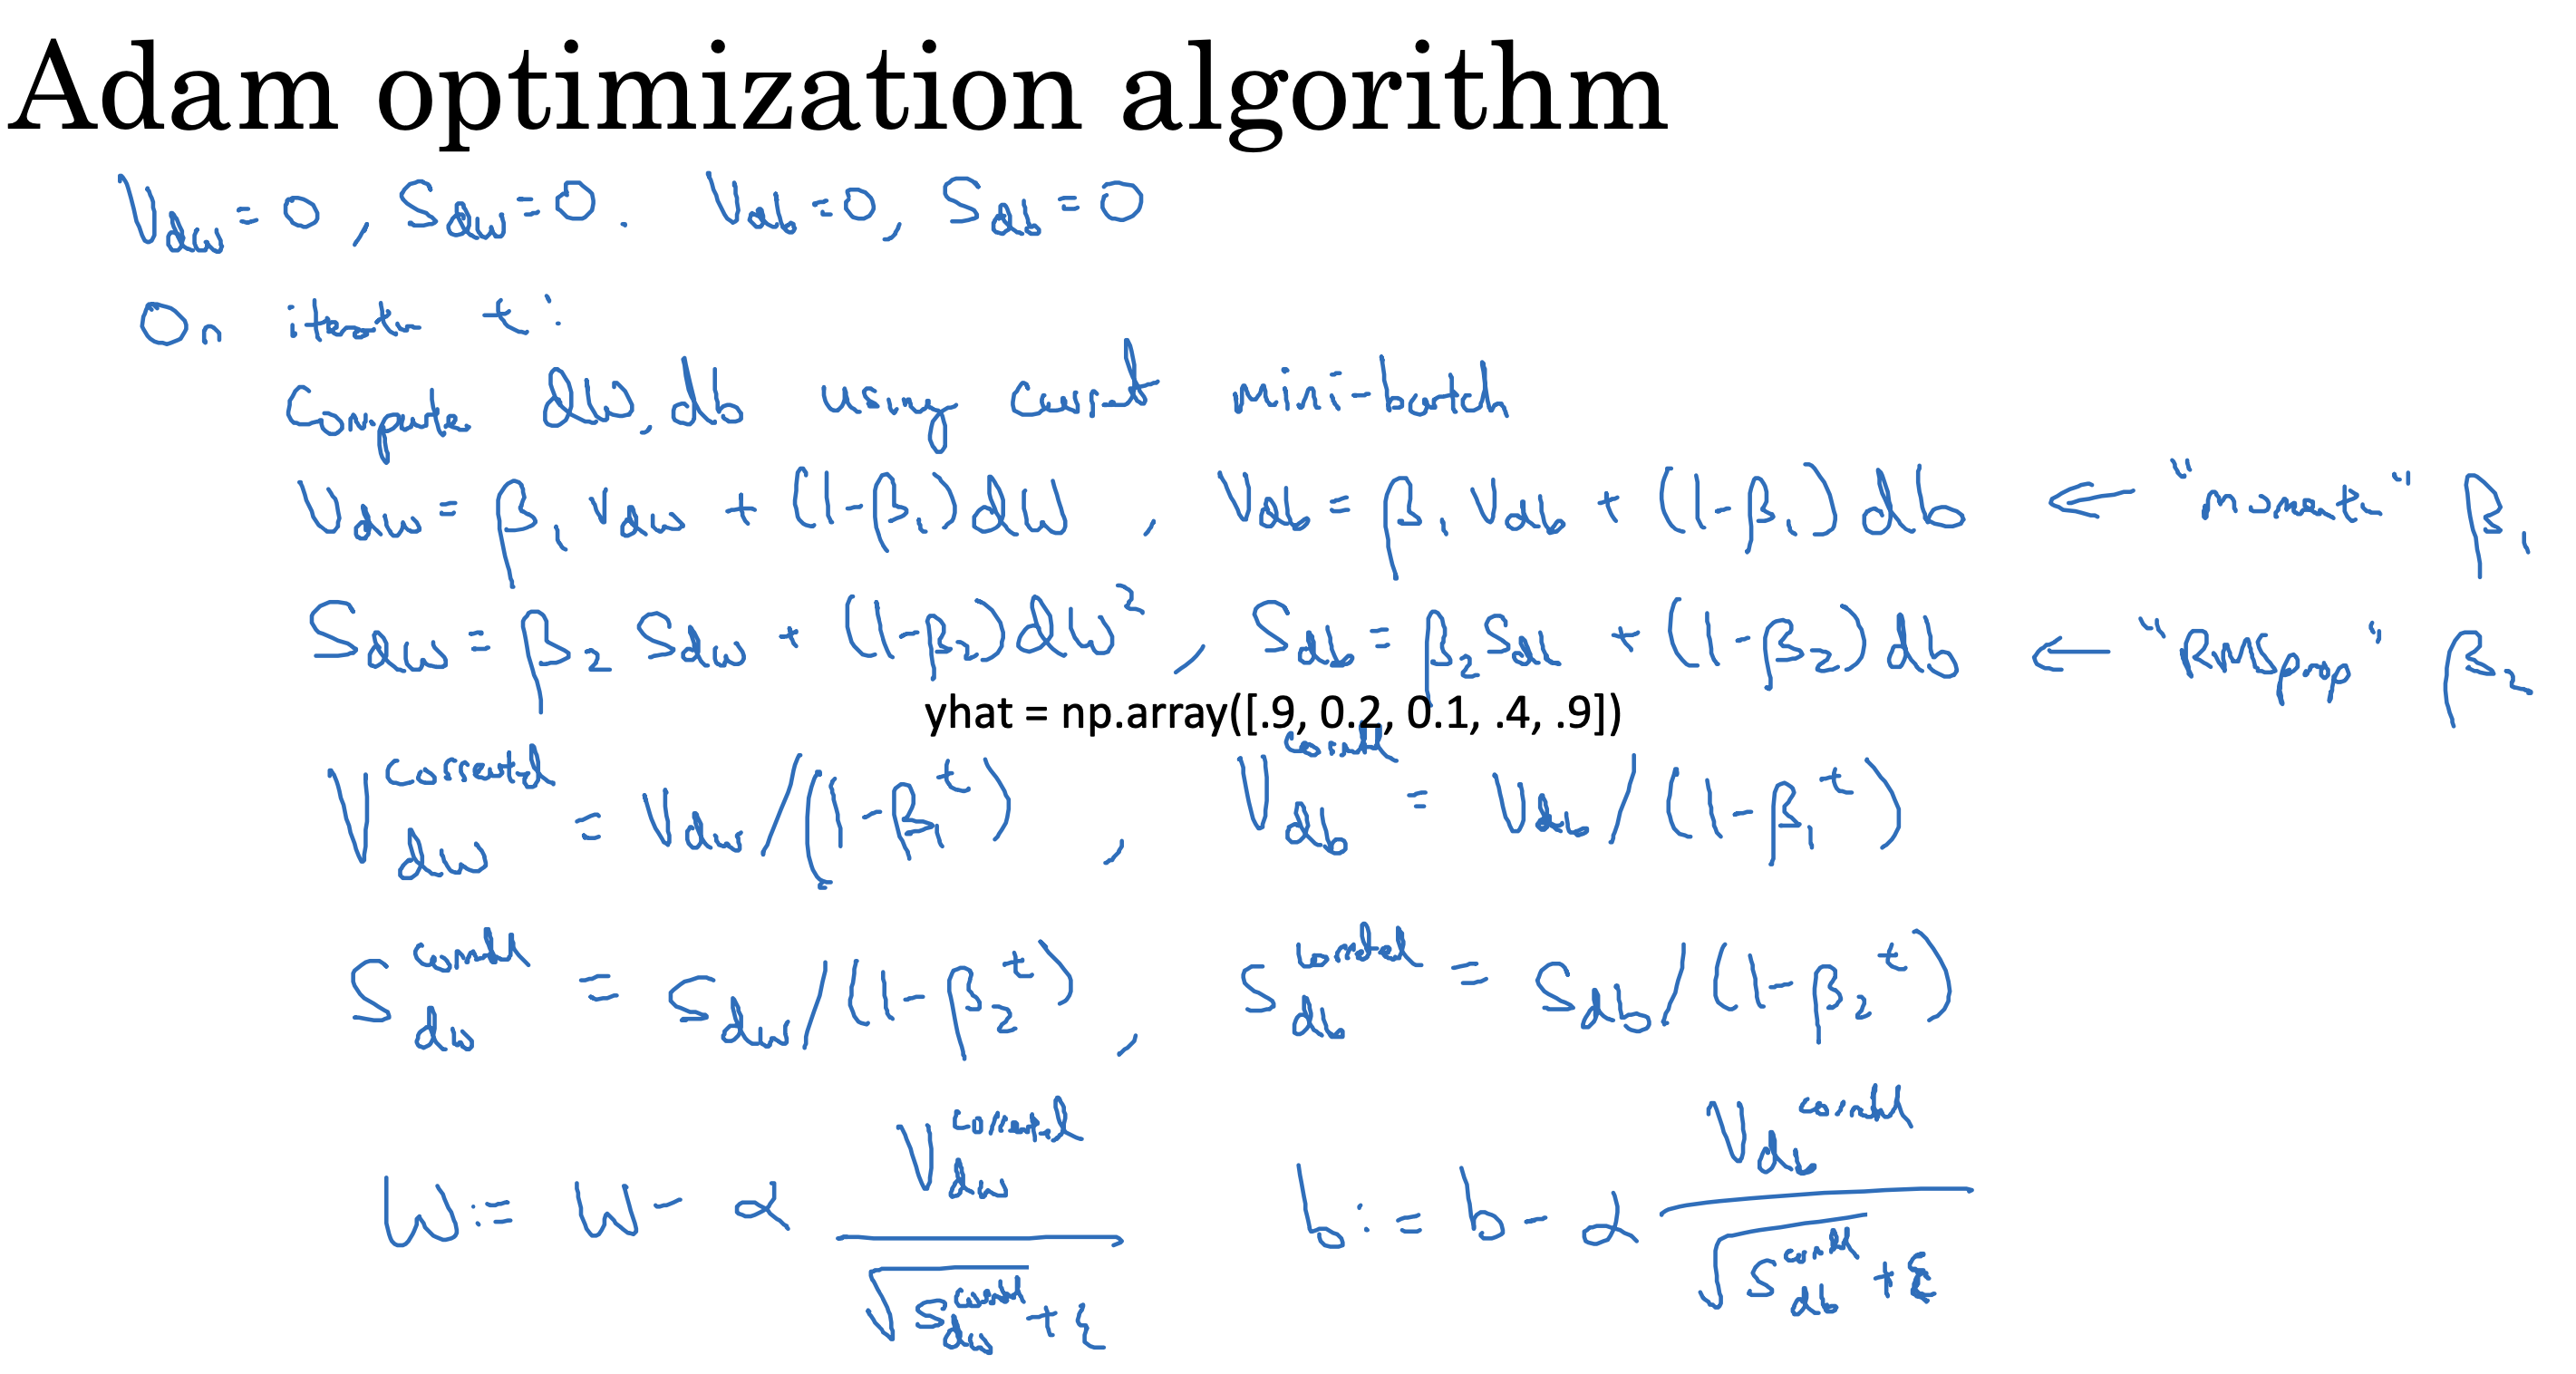 Adam optimization algorithm
V_dw = 0, S_dw = 0. V_db = 0, S_db = 0
On iteration t:
Compute dW, db using current mini-batch
V_dw = β₁ V_dw + (1-β₁) dW, V_db = β₁ V_db + (1-β₁) db ← "momentum" β₁
S_dw = β₂ S_dw + (1-β₂) dW², S_db = β₂ S_db + (1-β₂) db ← "RMSprop" β₂
yhat = np.array([.9, 0.2, 0.1, .4, .9])
V_dw^corrected = V_dw/(1-β₁^t), V_db^corrected = V_db/(1-β₁^t)
S_dw^corrected = S_dw/(1-β₂^t), S_db^corrected = S_db/(1-β₂^t)
W := W - α V_dw^corrected / (√S_dw^corrected + ε) b := b - α V_db^corrected / (√S_db^corrected + ε)